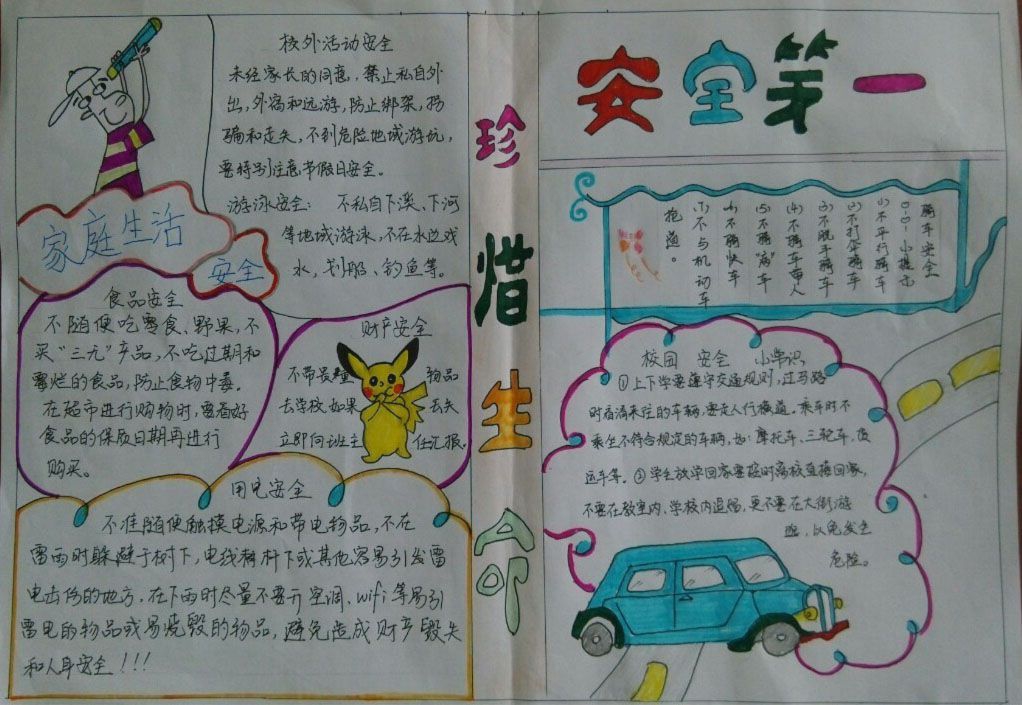 安全第一
珍惜生命
校外活动安全
未经家长的同意，禁止私自外
出，外宿和远游，防止绑架，拐
骗和走失，不到危险地域游玩，
要特别注意节假日安全。
游泳安全： 不私自下溪、下河
等地域游泳，不在水边戏
水，划船、钓鱼等。
家庭生活
安全
食品安全
不随便吃零食、野果，不
买“三无”产品，不吃过期和
霉烂的食品，防止食物中毒。
在超市进行购物时，要看好
食品的保质日期再进行
购买。
财产安全
不带贵重 物品
去学校，如果 丢失
立即向班主 任汇报。
用电安全
不准随便触摸电源和带电物品，不在
雷雨时躲避于树下，电线杆下或其他容易引发雷
电击伤的地方，在下雨时尽量不要开空调、wifi等易引
雷电的物品或易烧毁的物品，避免造成财产毁失
和人身安全！！！
骑车安全
小提示
(1)不平行骑车
(2)不打伞骑车
(3)不脱手骑车
(4)不骑车带人
(5)不骑“病”车
(6)不骑快车
(7)不与机动车
抢道。
校园 安全 小常识
①上下学要遵守交通规则，过马路
时看清来往的车辆，要走人行横道。乘车时不
乘坐不符合规定的车辆，如：摩托车、三轮车、
等。②学生放学回家要按时离校直接回家，
不要在教室内、学校内追赶，更不要在大街游
，以免发生
危险。